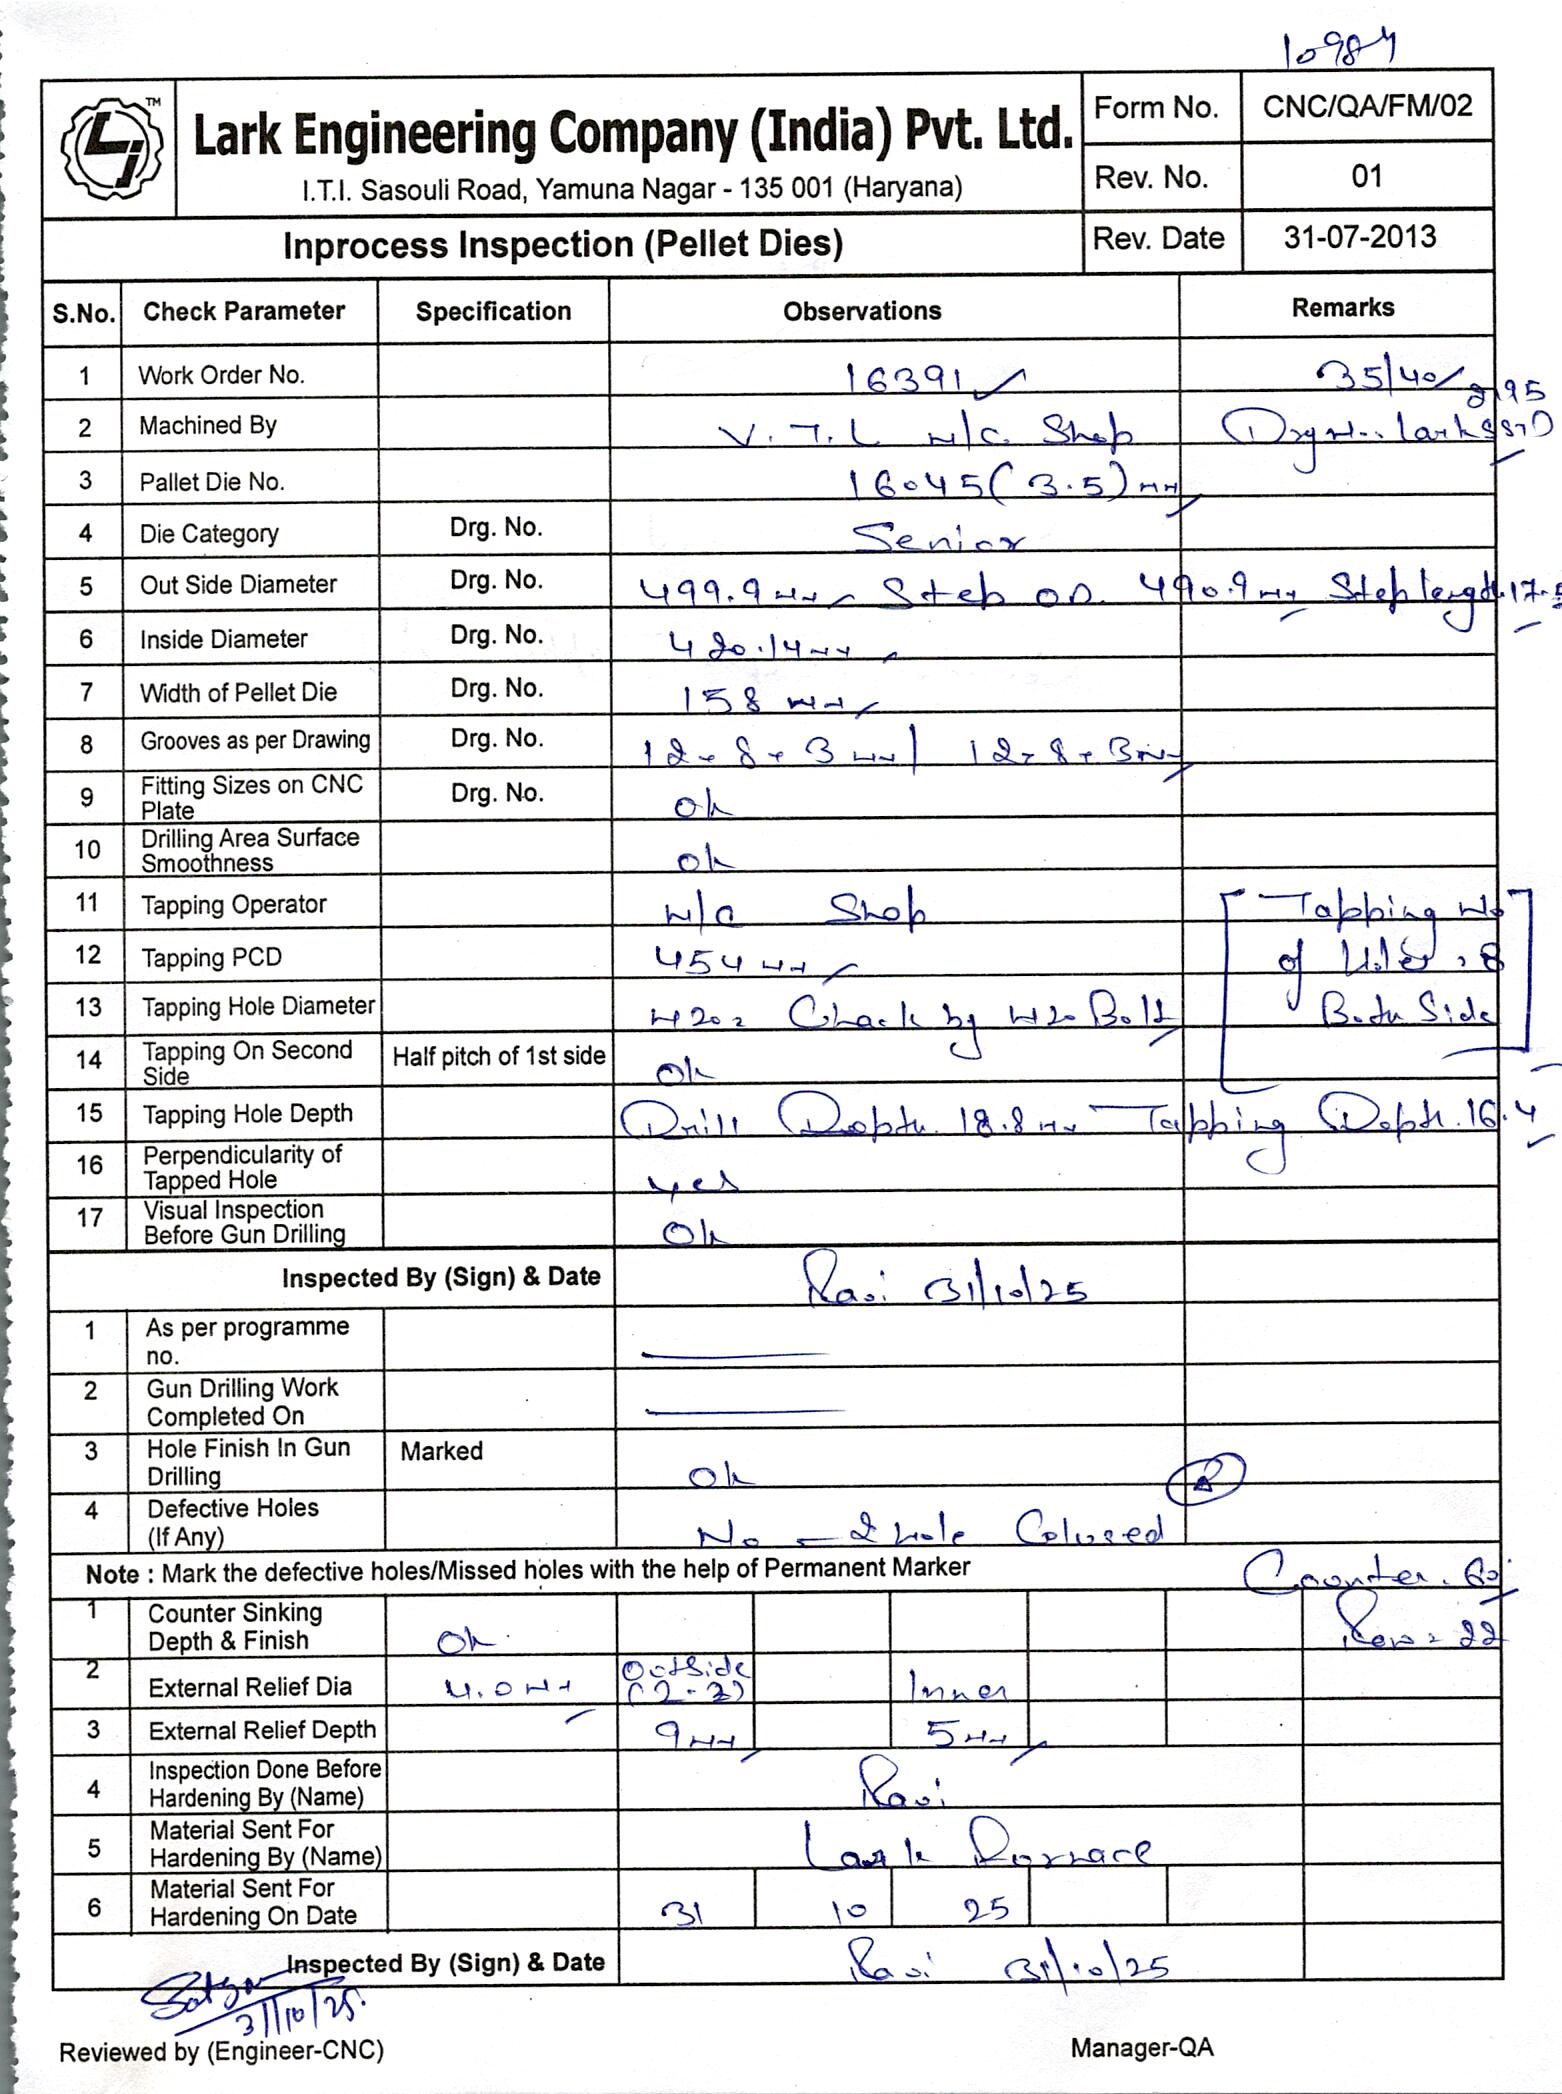 10984
LJ TM
Lark Engineering Company (India) Pvt. Ltd.
I.T.I. Sasouli Road, Yamuna Nagar - 135 001 (Haryana)
Form No. CNC/QA/FM/02
Rev. No. 01
Inprocess Inspection (Pellet Dies)
Rev. Date 31-07-2013
S.No. Check Parameter Specification Observations Remarks
1 Work Order No. 16391 35/40/2195
2 Machined By V.T.L M/C. Shop Drg No. Lark
3 Pallet Die No. 16045 (3.5) mm
4 Die Category Drg. No. Senior
5 Out Side Diameter Drg. No. 499.9 mm Step OD. 490.9 mm Step length. 17.5
6 Inside Diameter Drg. No. 420.14 mm
7 Width of Pellet Die Drg. No. 158 mm
8 Grooves as per Drawing Drg. No. 12 × 8 × 3 mm / 12 × 8 × 3 mm
9 Fitting Sizes on CNC Plate Drg. No. Ok
10 Drilling Area Surface Smoothness Ok
11 Tapping Operator M/C Shop Tapping No
12 Tapping PCD 454 mm of Holes = 8
13 Tapping Hole Diameter M20 = Check by M20 Bolt Both Side
14 Tapping On Second Side Half pitch of 1st side Ok
15 Tapping Hole Depth Drill Depth. 18.8 mm Tapping Depth. 16.4
16 Perpendicularity of Tapped Hole yes
17 Visual Inspection Before Gun Drilling Ok
Inspected By (Sign) & Date Ravi 31/10/25
1 As per programme no.
2 Gun Drilling Work Completed On
3 Hole Finish In Gun Drilling Marked Ok
4 Defective Holes (If Any) No - 2 hole Colused
Note : Mark the defective holes/Missed holes with the help of Permanent Marker Counter. 60°
1 Counter Sinking Depth & Finish Ok. Row = 22
2 External Relief Dia 4.0 mm Outside (2-2) Inner
3 External Relief Depth 9 mm 5 mm
4 Inspection Done Before Hardening By (Name) Ravi
5 Material Sent For Hardening By (Name) Lark Furnace
6 Material Sent For Hardening On Date 31 10 25
Inspected By (Sign) & Date Ravi 31/10/25
31/10/25.
Reviewed by (Engineer-CNC) Manager-QA